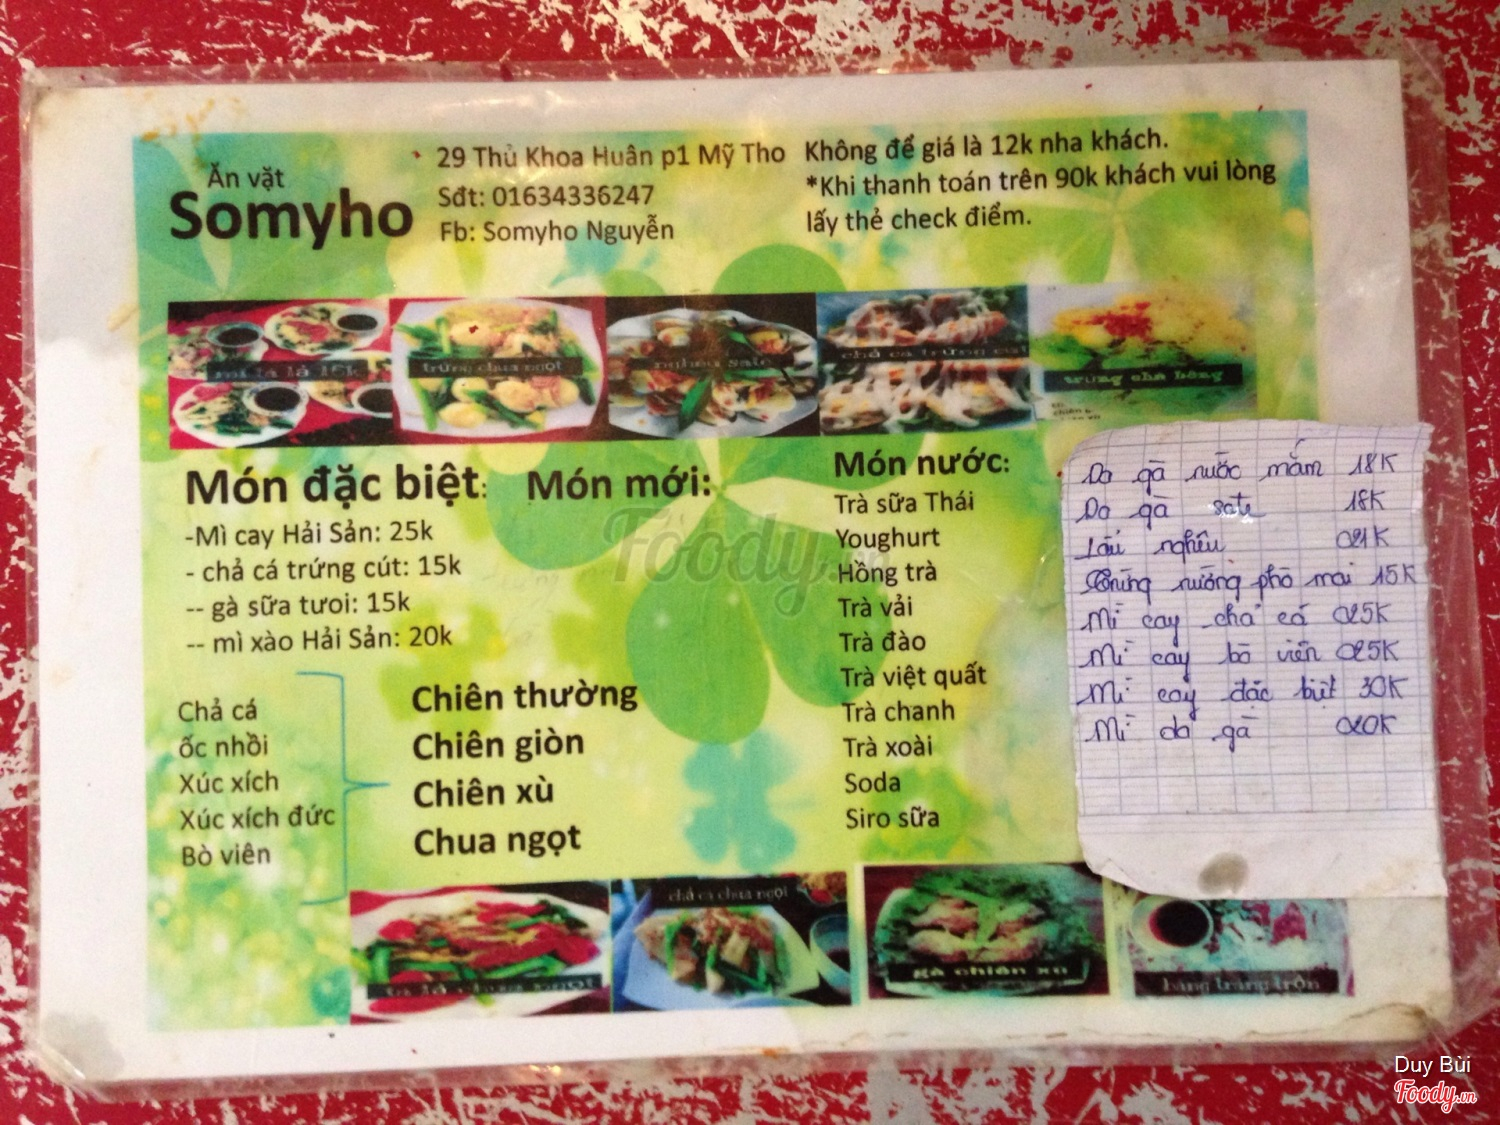 Ăn vặt
Somyho
29 Thủ Khoa Huân p1 Mỹ Tho
Sđt: 01634336247
Fb: Somyho Nguyễn
Không để giá là 12k nha khách.
*Khi thanh toán trên 90k khách vui lòng
lấy thẻ check điểm.
mì tá lả 15k
trứng chua ngọt
nghêu sate
chả cá trứng cút
trứng chà bông
Món đặc biệt:
-Mì cay Hải Sản: 25k
- chả cá trứng cút: 15k
-- gà sữa tươi: 15k
-- mì xào Hải Sản: 20k
Món mới:
Chả cá
ốc nhồi
Xúc xích
Xúc xích đức
Bò viên
Chiên thường
Chiên giòn
Chiên xù
Chua ngọt
Món nước:
Trà sữa Thái
Youghurt
Hồng trà
Trà vải
Trà đào
Trà việt quất
Trà chanh
Trà xoài
Soda
Siro sữa
Da gà nước mắm 18K
Da gà sate 18K
Lẩu nghêu 21K
Trứng nướng phô mai 15K
Mì cay chả cá 25K
Mì cay bò viên 25K
Mì cay đặc biệt 30K
Mì da gà 20K
tá lả chua ngọt
chả cá chua ngọt
gà chiên xù
bánh tráng trộn
Foody.vn
Duy Bùi
Foody.vn